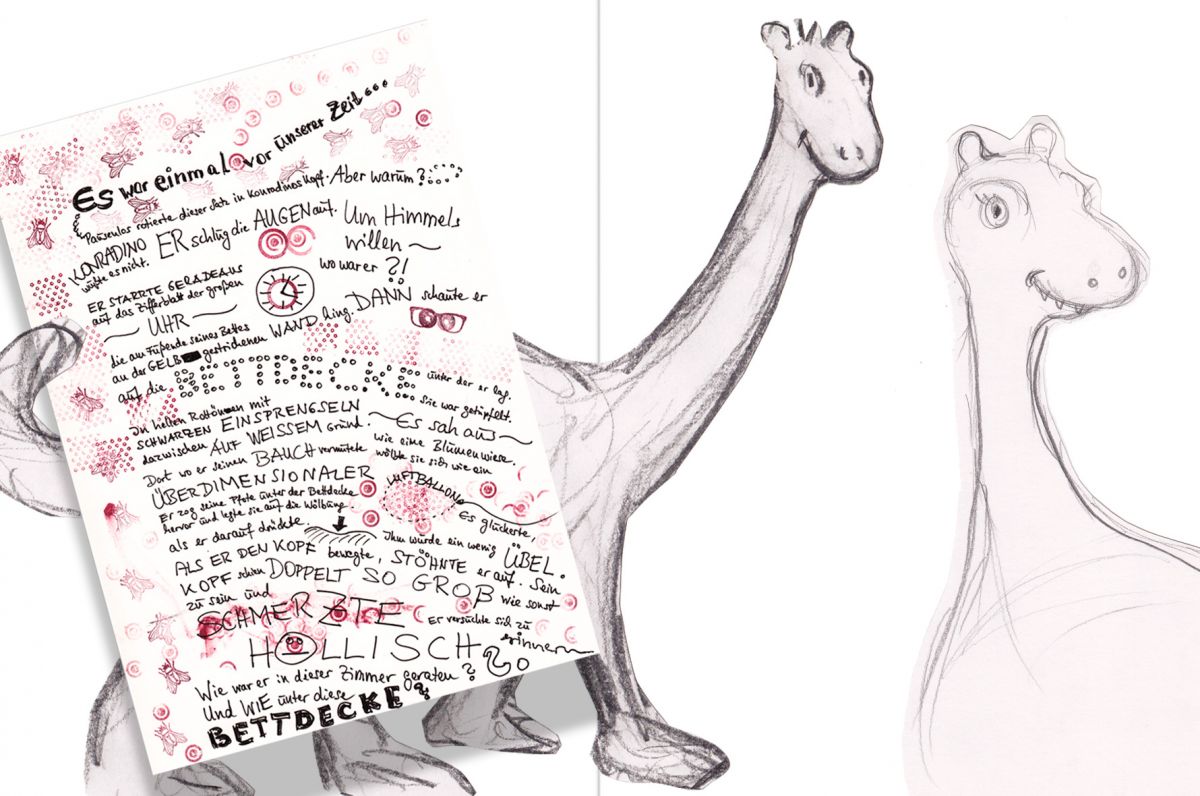 Es war einmal vor unserer Zeit...
Pausenlos rotierte dieser Satz in Konradinos Kopf. Aber warum?
KONRADINO
wußte es nicht. ER schlug die AUGEN auf. Um Himmels
willen ~
wo war er ?!
ER STARRTE GERADEAUS
auf das Zifferblatt der großen
~ UHR ~
DANN schaute er
die am Fußende seines Bettes
an der GELB gestrichenen WAND hing.
auf die BETTDECKE unter der er lag.
Sie war getüpfelt.
In hellen Rottönen mit
SCHWARZEN EINSPRENGSELN
dazwischen AUF WEISSEM Grund. ~ Es sah aus ~
wie eine Blumenwiese.
Dort wo er seinen BAUCH vermutete wölbte sie sich wie ein
ÜBERDIMENSIONALER
LUFTBALLON
Er zog seine Pfote unter der Bettdecke
hervor und legte sie auf die Wölbung.
Es gluckerte,
als er darauf drückte.
Ihm wurde ein wenig ÜBEL.
ALS ER DEN KOPF bewegte, STÖHNTE er auf. Sein
KOPF schien DOPPELT SO GROß wie sonst
zu sein und
SCHMERZTE
HÖLLISCH
Er versuchte sich zu
erinnern
Wie war er in dieser Zimmer geraten?
Und WIE unter diese
BETTDECKE?